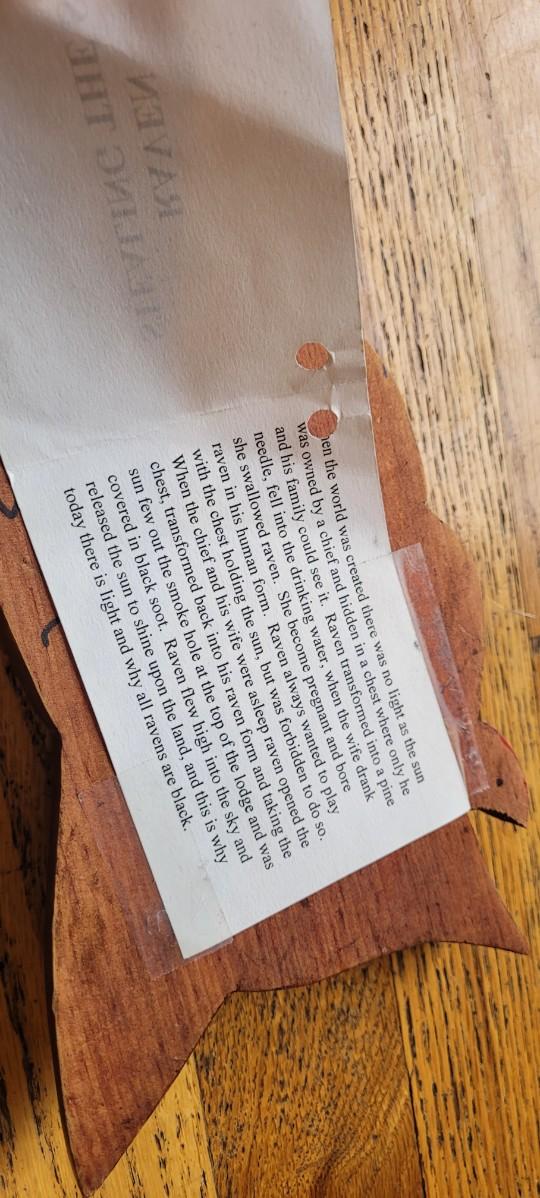 RAVEN
STEALING THE
hen the world was created there was no light as the sun
was owned by a chief and hidden in a chest where only he
and his family could see it. Raven transformed into a pine
needle, fell into the drinking water, when the wife drank
she swallowed raven. She become pregnant and bore
raven in his human form. Raven always wanted to play
with the chest holding the sun, but was forbidden to do so.
When the chief and his wife were asleep raven opened the
chest, transformed back into his raven form and taking the
sun few out the smoke hole at the top of the lodge and was
covered in black soot. Raven flew high into the sky and
released the sun to shine upon the land, and this is why
today there is light and why all ravens are black.